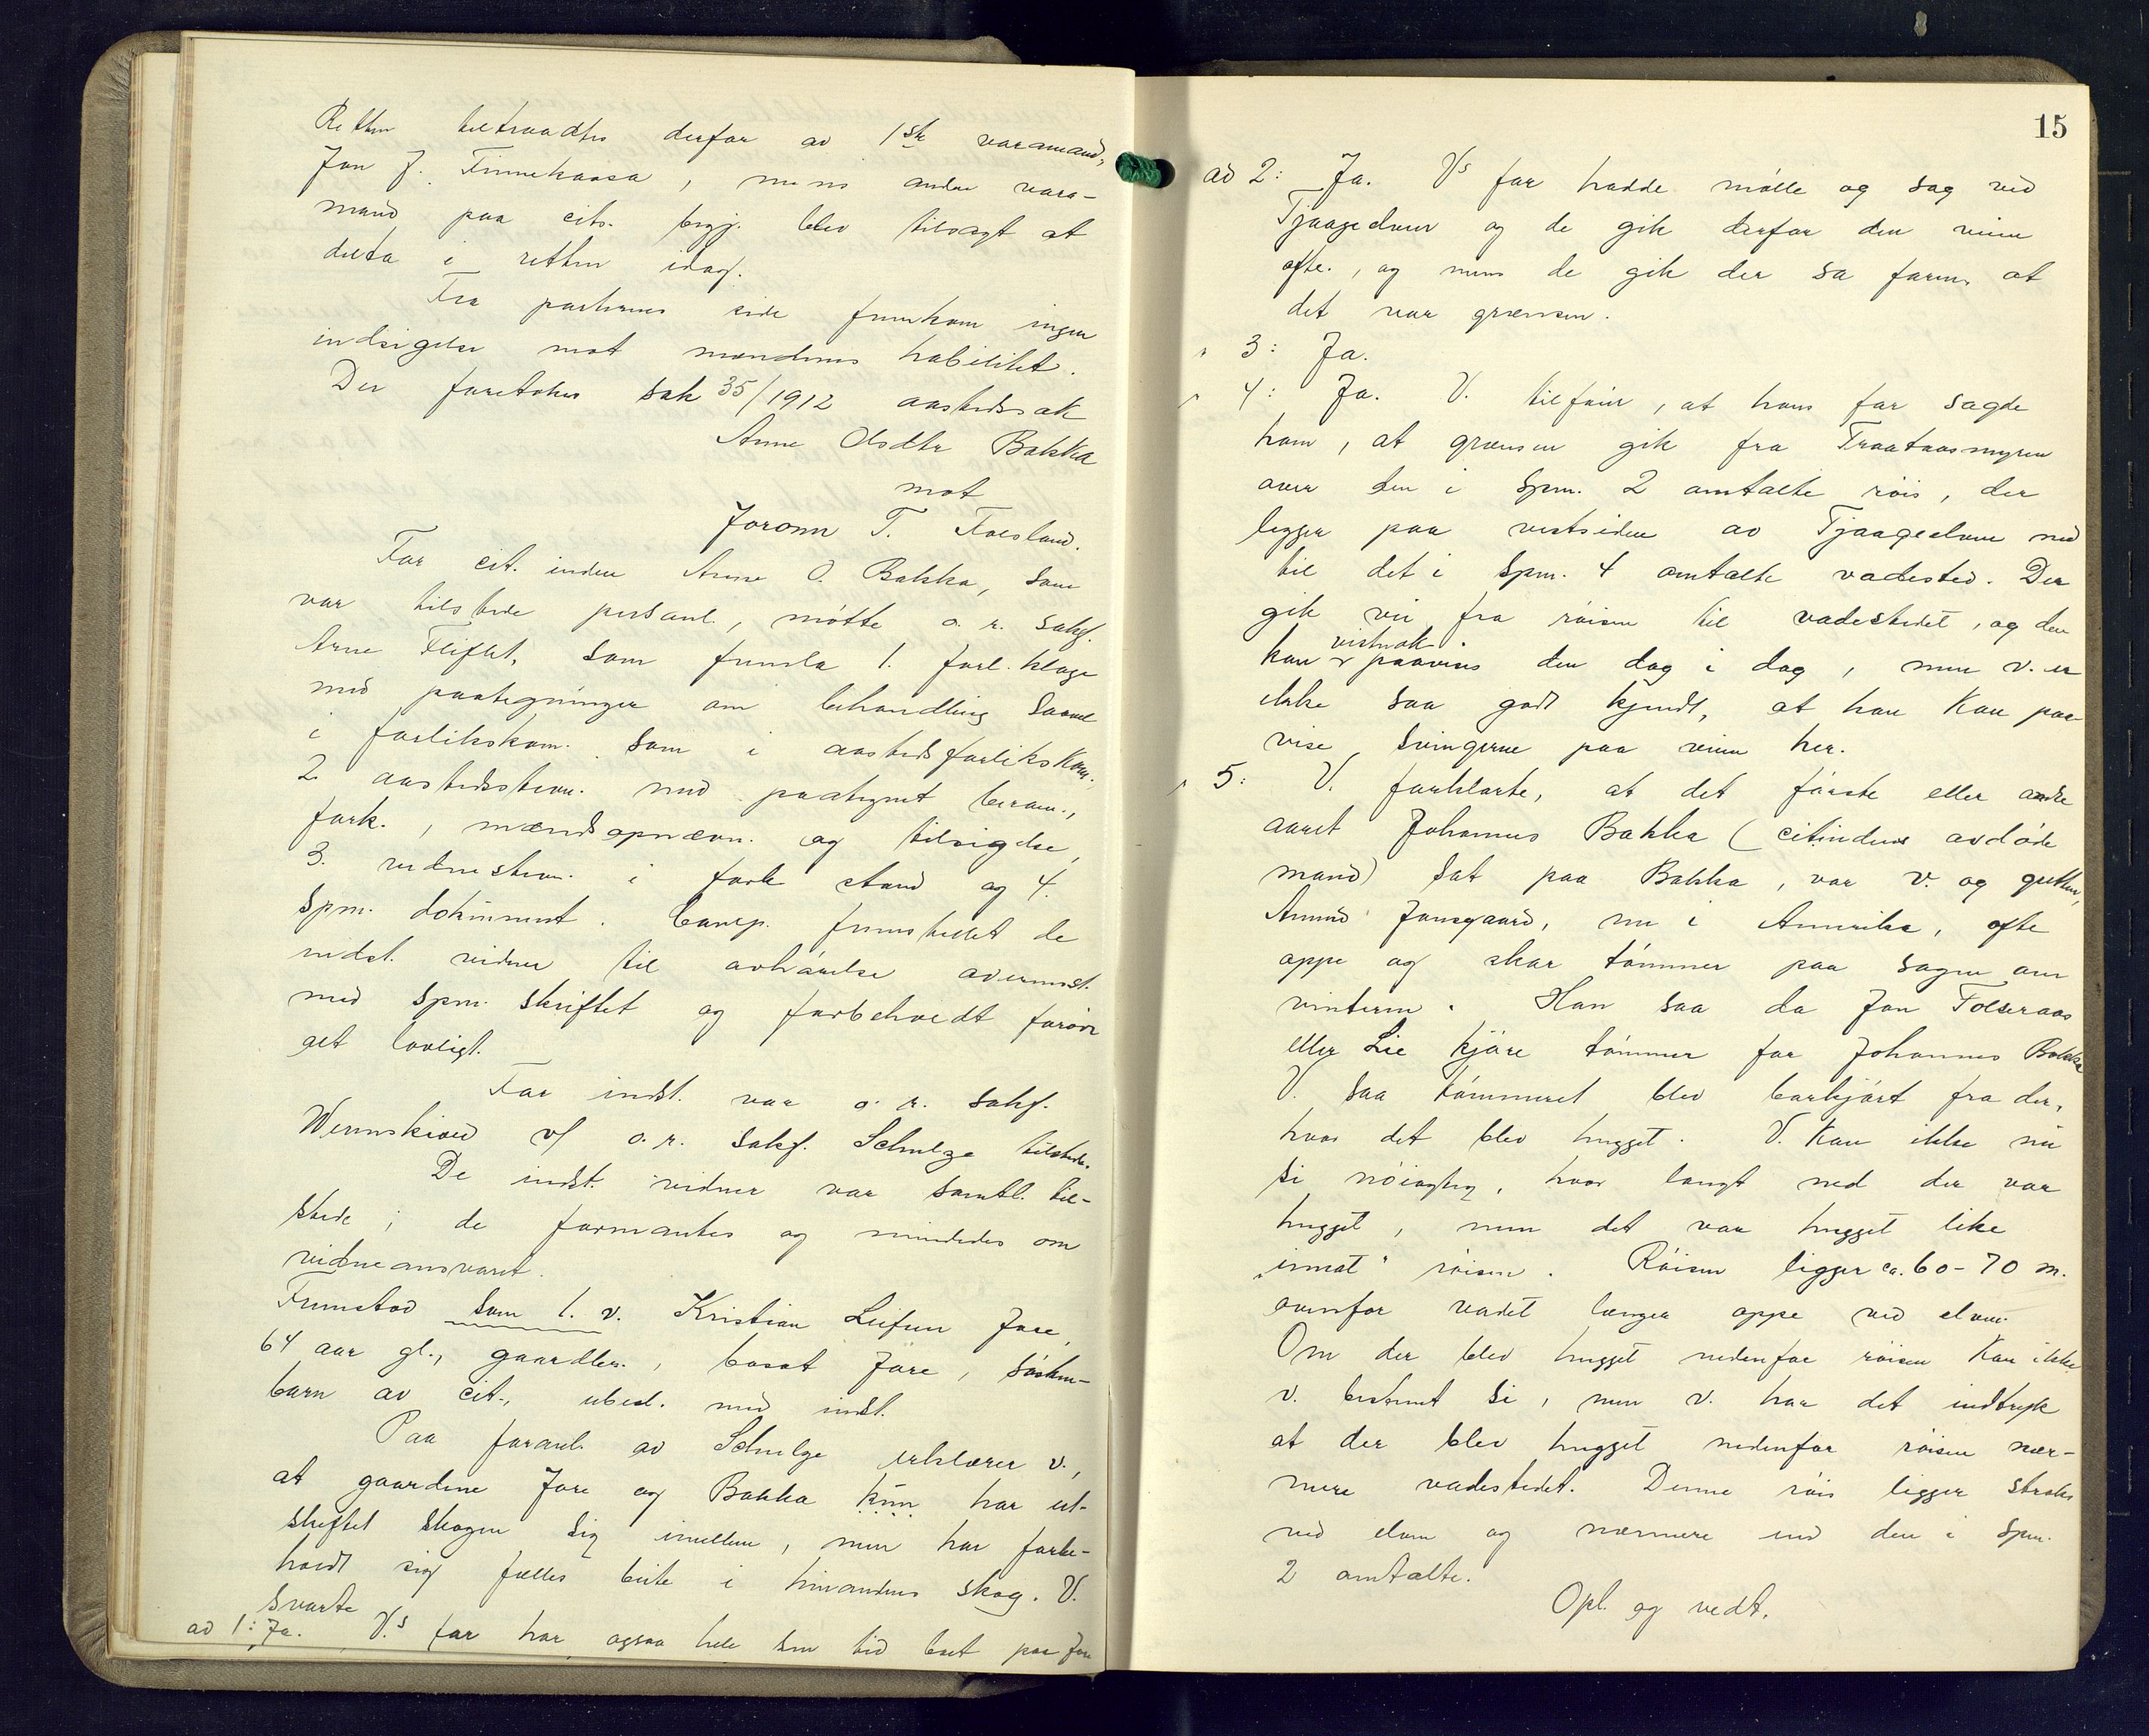 Retten tiltraadtes derfor av 1ste varamand,
Jon J. Finnekaasa, mens anden vara-
mand paa cits. begj. blev tilsagt at
delta i retten idag.
Fra parternes side fremkom ingen
indsigelse mot mændenes habilitet.
Der foretokes sak 35/1912 aastedssak
Anne Olsdtr Bakka
mot
Joronn T. Folsland.
For cit.inden Anne O. Bakka, som
var tilstede personl., møtte o. r. sakf.
Arne Fliflet, som fremla 1. forl.klage
med paategninger om behandling saavel
i forlikskom. som i aastedsforlikskom.,
2. aastedsstevn. med paategnet beram.,
fork., mændsopnævn. og tilsigelse,
3. vidnestevn. i fork. stand og 4.
spm. dokument. Comp. fremstillet de
indst. vidner til avhørelse overensst.
med spm. skriftet og forbeholdt forøvr.
alt lovligt.
For indst. var o. r. sakf.
Wennskioed v/ o. r. sakf. Schulze tilstede.
De indst. vidner var samtl. til-
stede; de formantes og mindedes om
vidneansvaret.
Fremstod som 1. v. Kristian Leifsen Jore,
64 aar gl., gaardbr., bosat Jore, søsken-
barn av cit., ubesl. med indst.
Paa foranl. av Schulze erklærer v.,
at gaardene Jore og Bakka kun har ut-
skiftet skogen sig imellem, men har forbe-
holdt sig fælles beite i hinandens skog. V.
svarte
ad 1: Ja. V.s far har ogsaa hele sin tid bodt paa Jore
15
ad 2: Ja. Vs far hadde mølle og sag ved
Tjaageelven og de gik derfor den veien
ofte, og mens de gik der sa faren, at
det var grænsen.
" 3: Ja.
" 4: Ja. V. tilføier, at hans far sagde
ham, at grænsen gik fra Traataasmyren
over den i spm. 2 omtalte røis, der
ligger paa vestsiden av Tjaageelven ned
til det i spm. 4 omtalte vadested. Der
gik vei fra røisen til vadestedet, og den
vistnok
kan paavises den dag i dag, men v. er
ikke saa godt kjendt, at han kan paa-
vise svingerne paa veien her.
" 5: V. forklarte, at det første eller andre
aaret Johannes Bakka (citindens avdøde
mand) sat paa Bakka, var v. og gutten,
Amund Jonsgaard, nu i Amerika, ofte
oppe og skar tømmer paa sagen om
vinteren. Han saa da Jon Folseraas
eller Lie kjøre tømmer for Johannes Bakka
V. saa tømmeret blev borkjørt fra der,
hvor det blev hugget. V. kan ikke nu
si nøiagtig, hvor langt ned der var
hugget, men det var hugget like
"inmot" røisen. Røisen ligger ca. 60-70 m.
ovenfor vadet længer oppe ved elven.
Om der blev hugget nedenfor røisen kan ikke
v. bestemt si, men v. har det indtryk
at der blev hugget nedenfor røisen nær-
mere vadestedet. Denne røis ligger straks
ved elven og nærmere end den i spm.
2 omtalte.
Opl. og vedt.